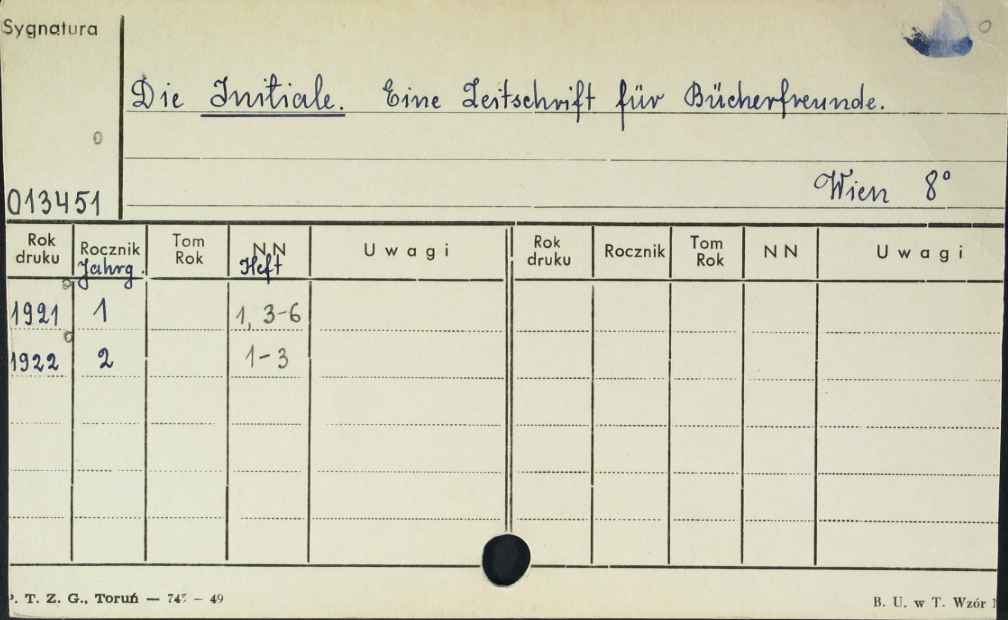 Sygnatura
Die Initiale. Eine Zeitschrift für Bücherfreunde.
Wien 8°
013451
Rok druku Rocznik Jahrg. Tom Rok NN Heft Uwagi Rok druku Rocznik Tom Rok NN Uwagi
1921 1 1, 3-6
1922 2 1-3
. T. Z. G., Toruń — 745 — 49
B. U. w T. Wzór 1